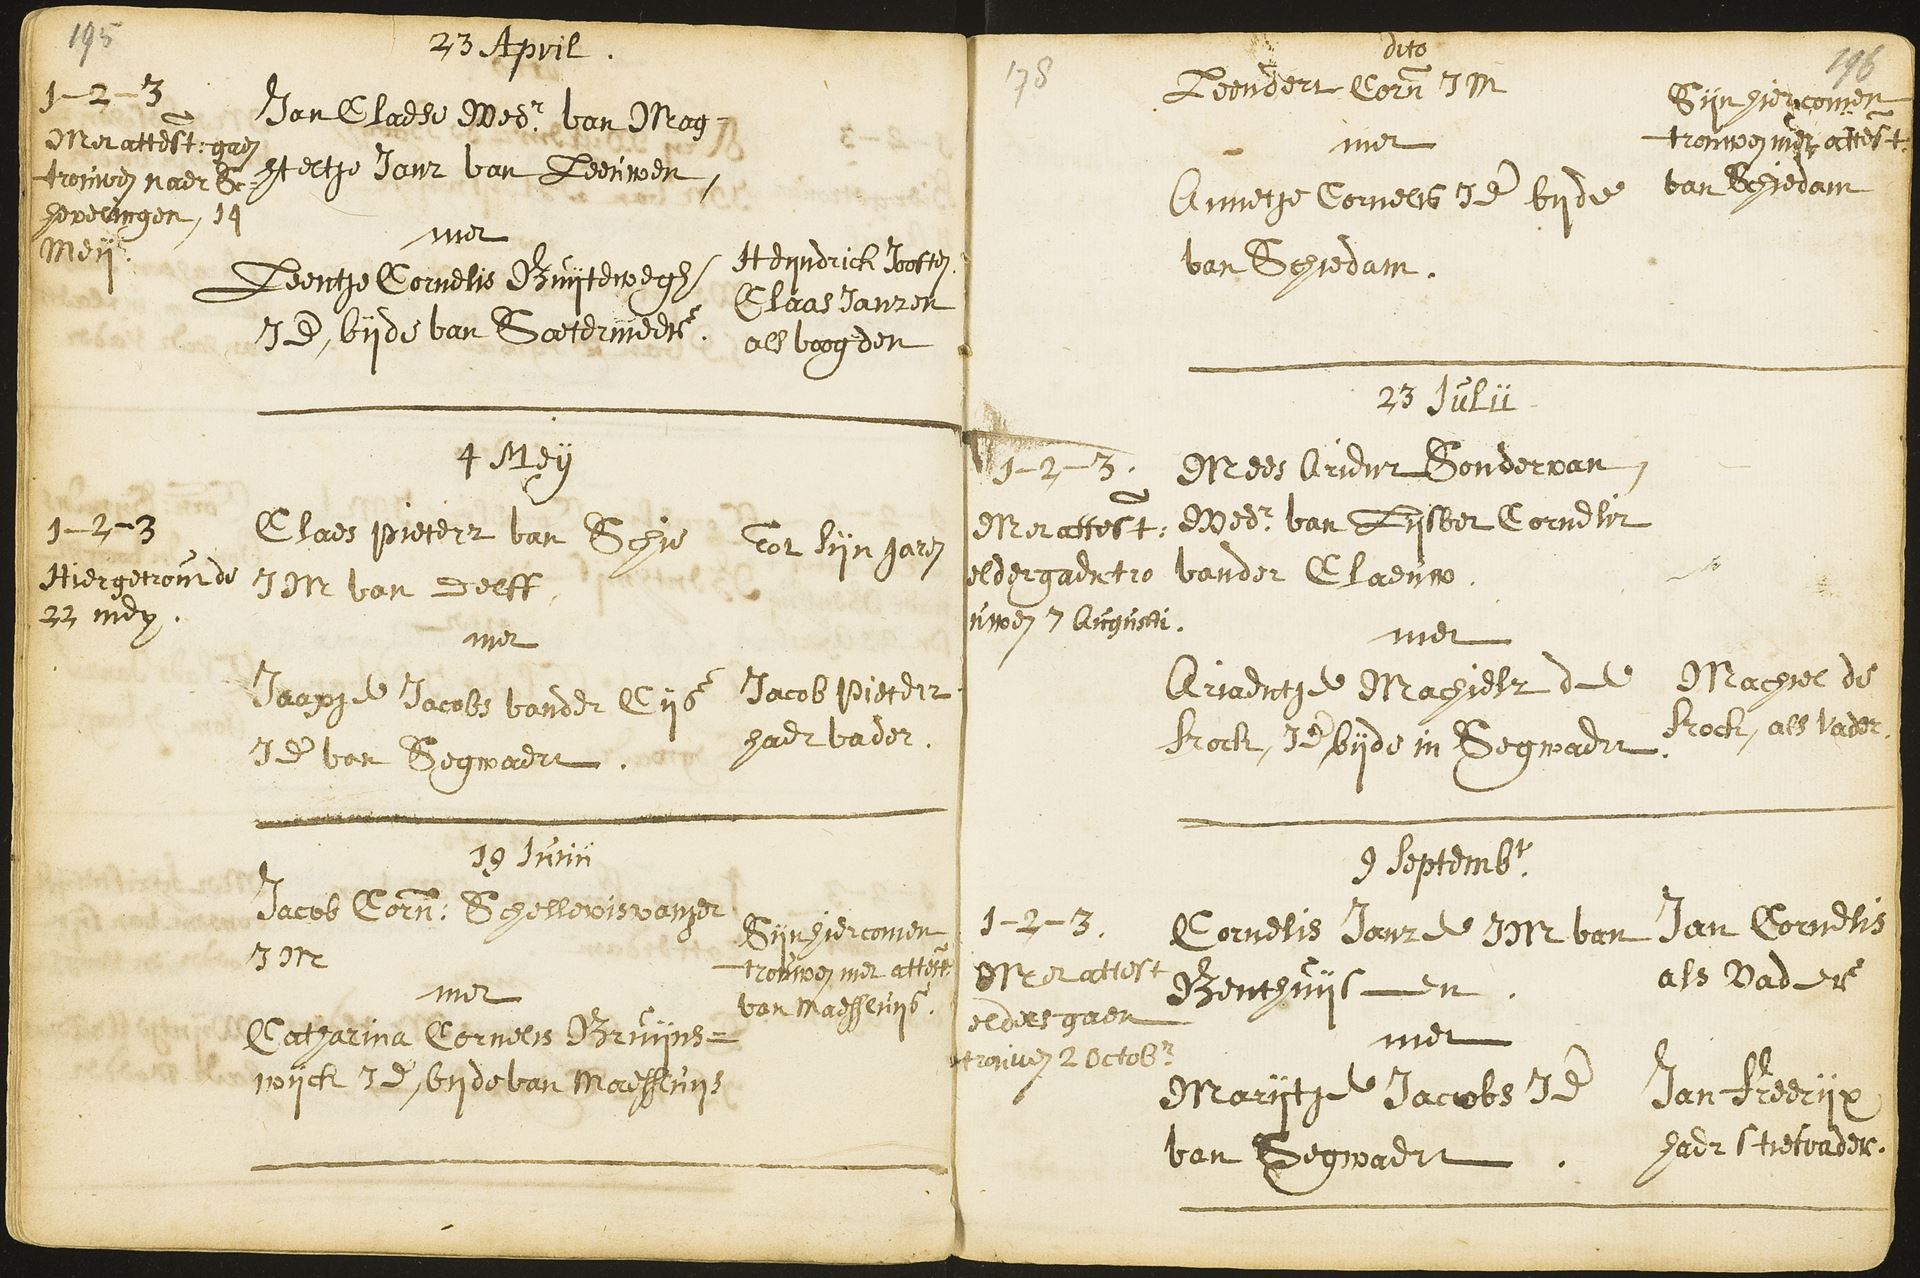 195
23 April.
1-2-3
Met attest: gaen
trouwen naer Sc-
hevelingen, 14
Meij.
Jan Claesse Wedr. van Mag-
hteltje Jans van Leeuwen,
met
Leentje Cornelis Buijtewegh
JD, beijde van Soetermeer.
Heijndrick Joosten
Claas Janzen
als voogden
4 Meij
1-2-3
Hier getrout de
22 meij.
Claes Pieterz van Schie
JM van Delff,
met
Jaapje Jacobs vander
JD van Segwaert.
Tot sijn jaren
Jacob Pieterz
haer vader.
19 Junii
Jacob Corn: Schellevisvanger
JM
met
Catharina Cornelis Bruijns=
wijck JD, beijde van Maessluijs
Sijn hier comen
trouwen met attest
van Maessluijs.
178
196
dito
Leendert Corn JM
met
Annetje Cornelis JD beijde
van Schiedam.
Sijn hier comen
trouwen met attest:
van Schiedam
23 Julii
1-2-3.
Met attest:
elder gaen tro
uwen 7 Augusti.
Mees Ariensz Sondervan,
Wedr. van Lijsbet Cornelis
vander Claeuw.
met
Ariaentje Machielz de
kock, JD beijde in Segwaert.
Machiel de
kock, als vader.
9 Septembr.
1-2-3.
Met attest
elders gaen
trouwen 2 Octobr
Cornelis Janze JM van
Benthuijsen.
met
Marijtje Jacobs JD
van Segwaert.
Jan Cornelis
als Vader
Jan freerijx
haer stiefvader.